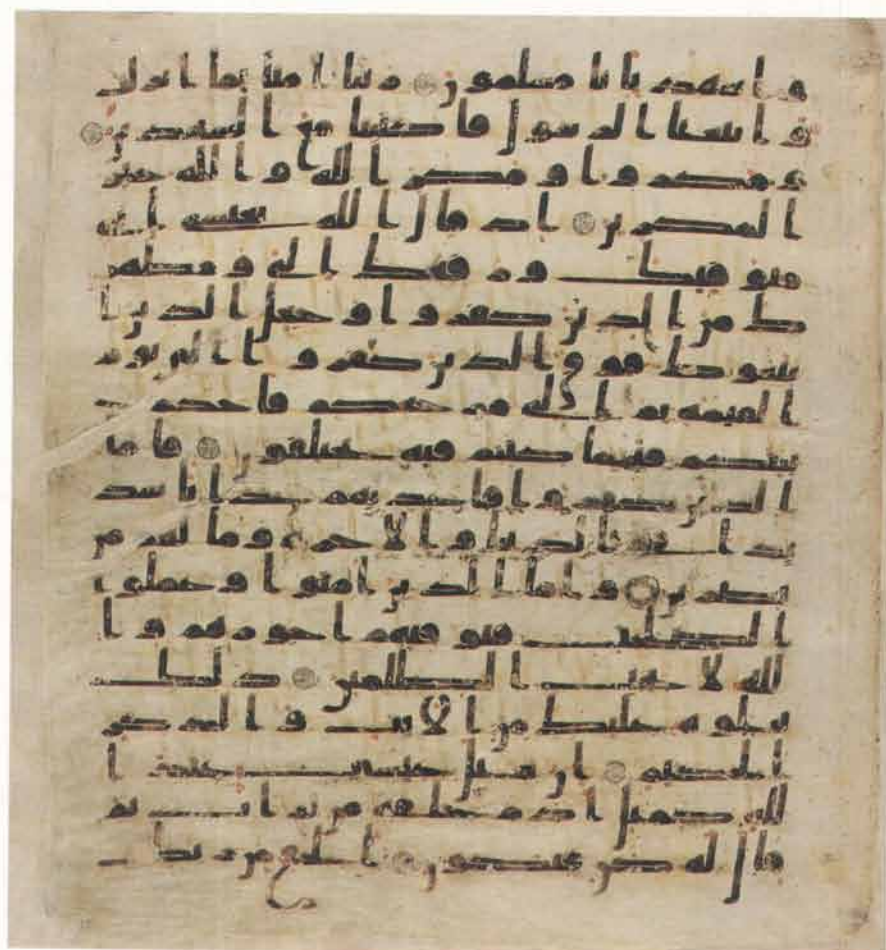 واشهد بانا مسلمون ربنا امنا بما انزلت
واتبعنا الرسول فاكتبنا مع الشهدين
ومكروا ومكر الله والله خير
المكرين اذ قال الله يعيسى اني
متوفيك ورفعك الي ومطهر
ك من الذين كفروا وجعل الذين ا
تبعوك فوق الذين كفروا الى يوم
القيمه ثم الي مرجعكم فاحكم
بينكم فيما كنتم فيه تختلفون فاما
الذين كفروا فاعذبهم عذابا شد
يدا في الدنيا والاخره وما لهم م
ن نصرين واما الذين امنوا وعملوا
الصلحت فيوفيهم اجورهم وا
لله لا يحب الظلمين ذلك
نتلوه عليك من الايت والذكر
الحكيم ان مثل عيسى عند ا
لله كمثل ادم خلقه من تراب ثم
قال له كن فيكون الحق من ربك